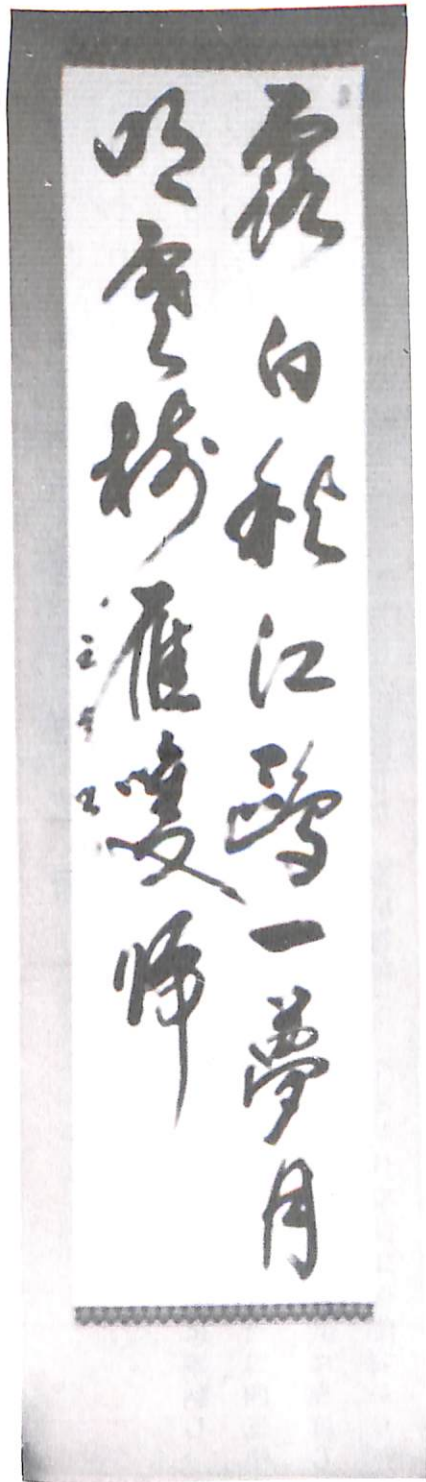 露白秋江鷗一夢月
明雲樹雁雙歸